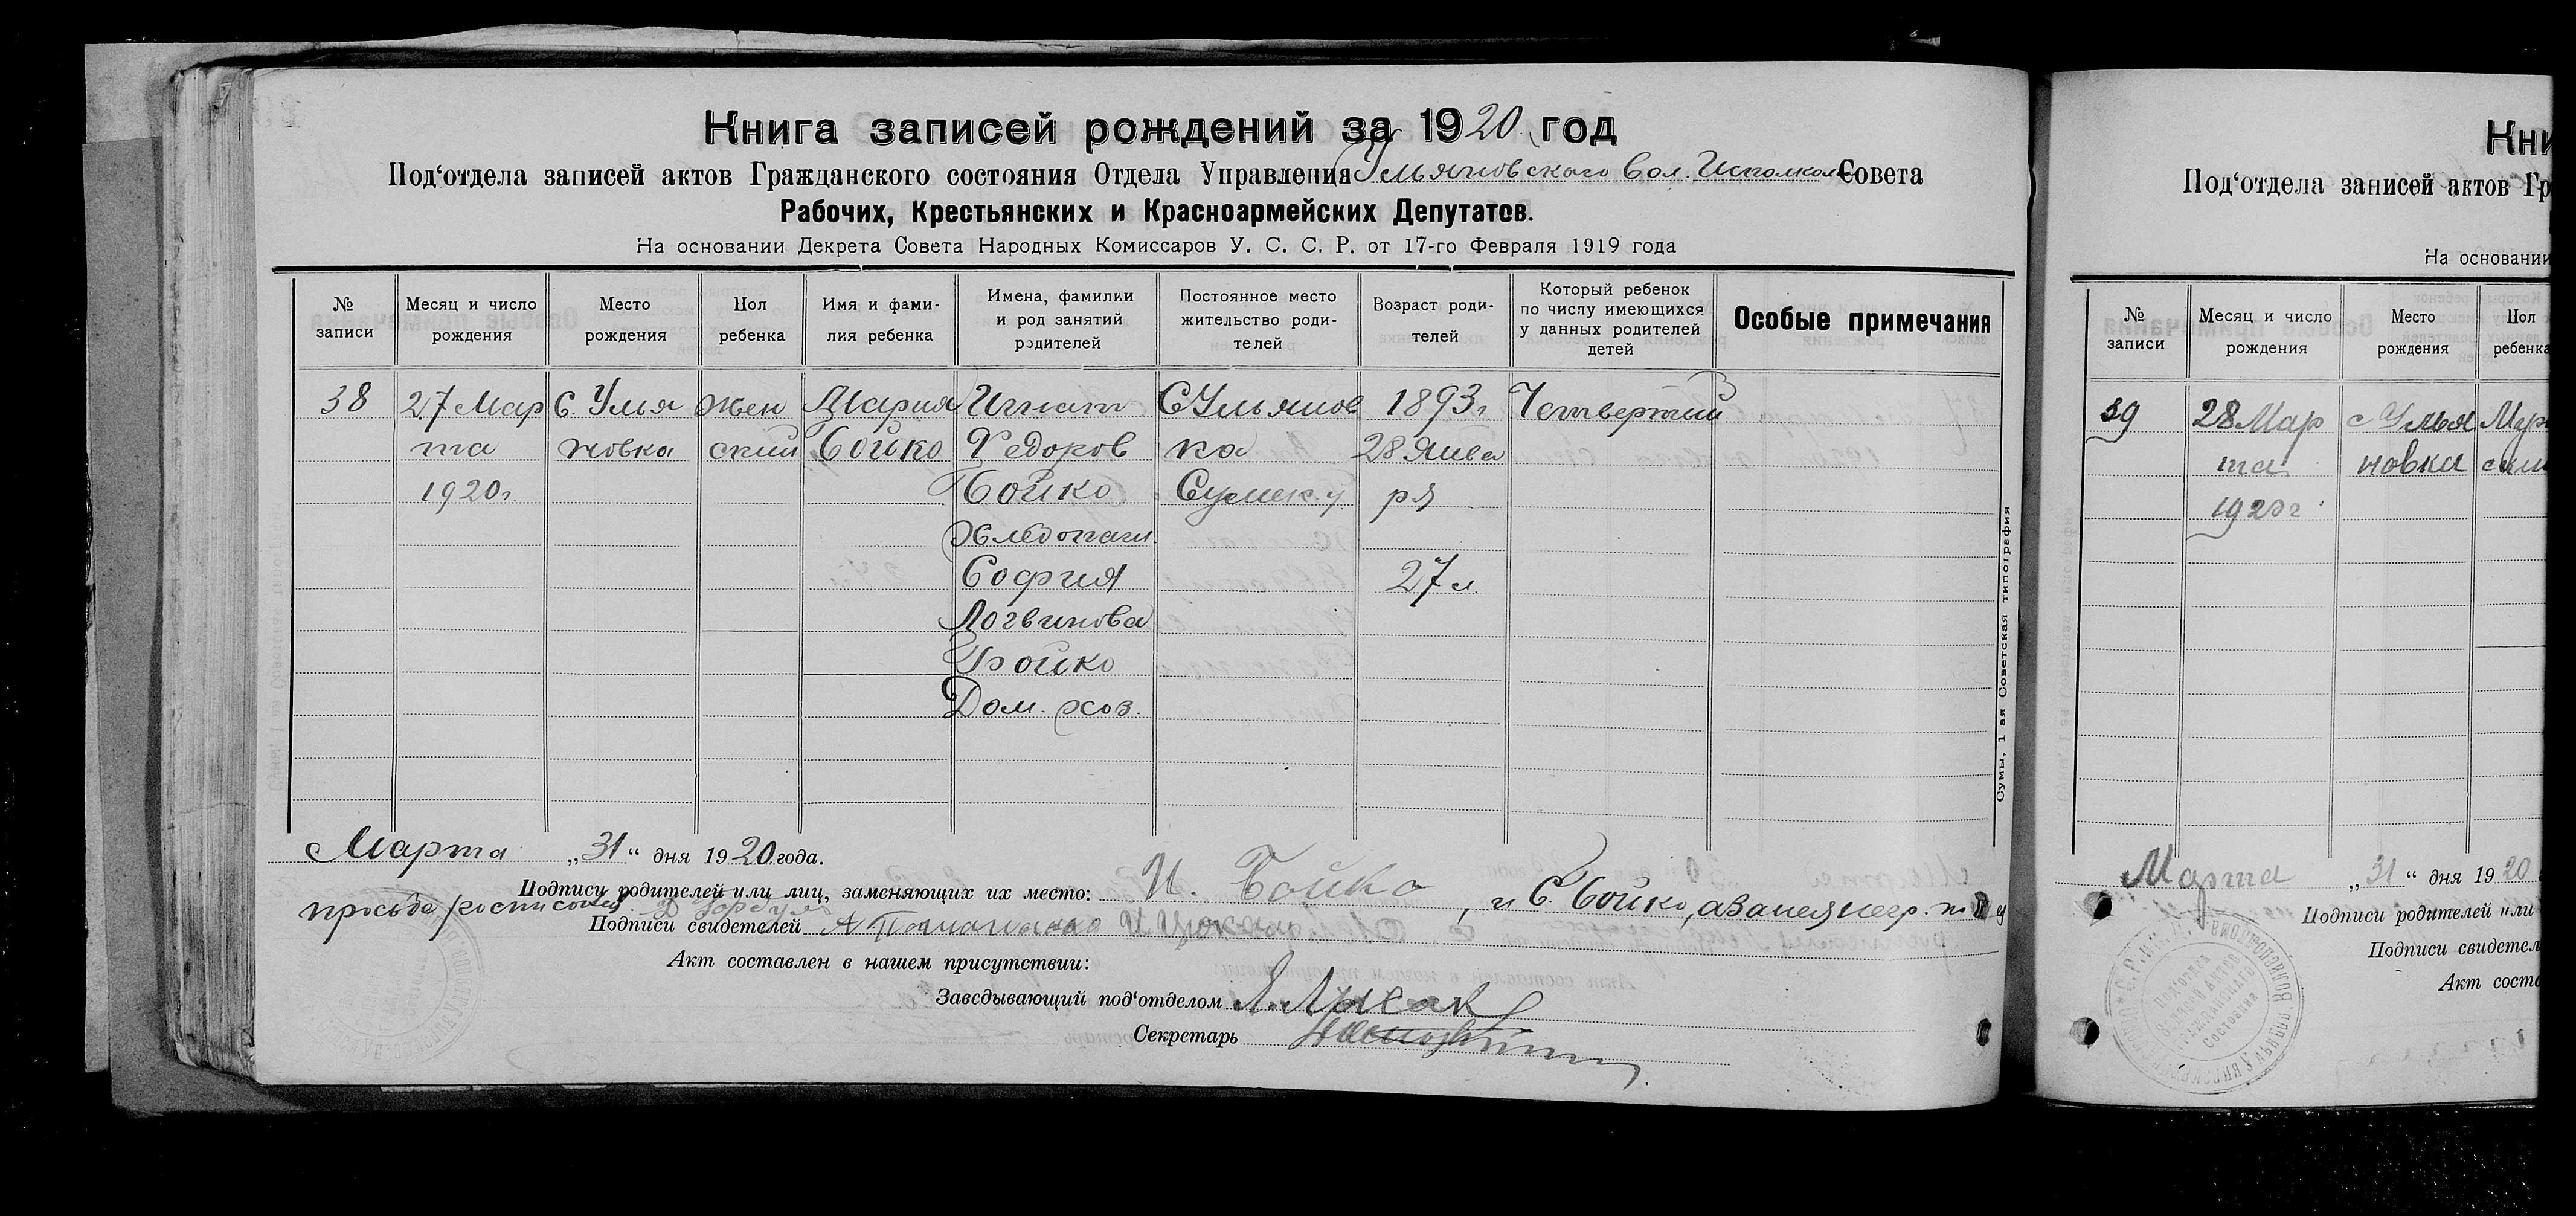 Книга записей рождений за 1920 год
Под‘отдела записей актов Гражданского состояния Отдела Управления Ульяновского Вол. Исполкома Совета
Рабочих, Крестьянских и Красноармейских Депутатов.
На основании Декрета Совета Народных Комиссаров У. С. С. Р. от 17-го Февраля 1919 года
№ записи
Месяц и число рождения
Место рождения
Пол ребенка
Имя и фами-
лия ребенка
Имена, фамилии
и род занятий
родителей
Постоянное место
жительство роди-
телей
Возраст роди-
телей
Который ребенок
по числу имеющихся
у данных родителей
детей
Особые примечания
38
27 Мар
та
1920г
С. Улья
новка
жен
ский
Мария
Бойко
Игнат
Федоров
Бойко
Хлебопаш.
София
Логвинова
Бойко
Дом. хоз.
С Ульянов
ка
Сумск. у
1893г
28 Янва
ря
27 л.
Четвертий
Сумы, 1 ая Советская типография
Марта „31“ дня 1920 года.
Подписи родителей или лиц, заменяющих их место: И. Бойко, и С. Бойко, а за нея негр. по ея
просьбе росписался
Подписи свидетелей А
Акт составлен в нашем присутствии:
Заведывающий под‘отделом Лысак
Секретарь
Кни
Под‘отдела записей актов Гр
На основании
№ записи
Месяц и число рождения
Место рождения
Пол ребенка
39
28 Мар
та
1920г
с Улья
новка
Муж
ски
Марта „31“ дня 1920
Подписи родителей или
Подписи свидетел
Акт соста